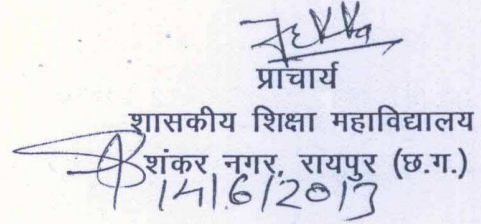 प्राचार्य
शासकीय शिक्षा महाविद्यालय
शंकर नगर, रायपुर (छ.ग.)
14/6/2013